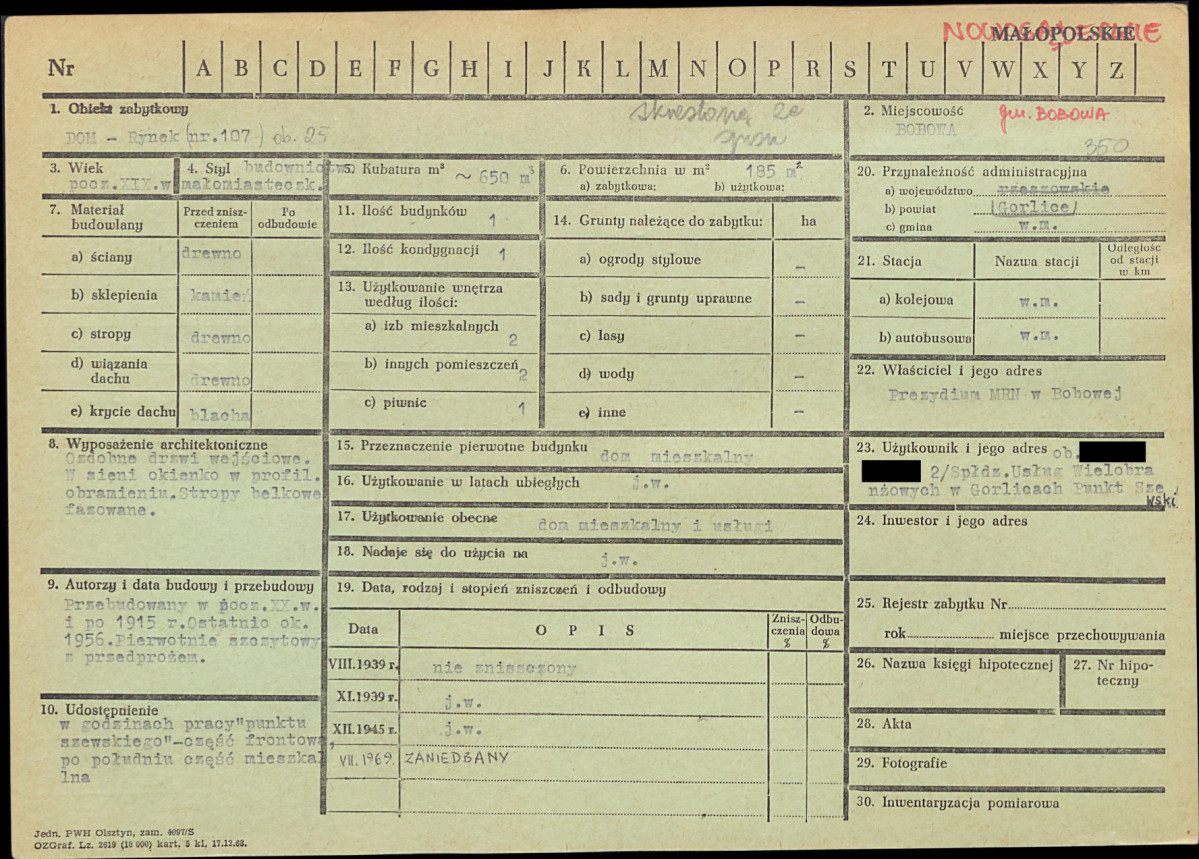 NOWOSĄDECKIE
MAŁOPOLSKIE
Nr A B C D E F G H I J K L M N O P R S T U V W X Y Z
1. Obiekt zabytkowy
DOM - Rynek (nr.107) ob. 25
skreślony ze
2. Miejscowość gm. BOBOWA
BOBOWA
350
3. Wiek
pocz.XIX.w
4. Styl budownictwo
małomiasteczk.
5. Kubatura m³ ~ 650 m³
6. Powierzchnia w m² 185 m²
a) zabytkowa: b) użytkowa:
20. Przynależność administracyjna
a) województwo rzeszowskie
b) powiat (Gorlice)
c) gmina w.m.
7. Materiał
budowlany
Przed znisz-
czeniem
Po
odbudowie
a) ściany drewno
b) sklepienia kamień
c) stropy drewno
d) wiązania
dachu drewno
e) krycie dachu blacha
11. Ilość budynków 1
12. Ilość kondygnacji 1
13. Użytkowanie wnętrza
według ilości:
a) izb mieszkalnych
2
b) innych pomieszczeń
2
c) piwnic 1
14. Grunty należące do zabytku: ha
a) ogrody stylowe –
b) sady i grunty uprawne –
c) lasy –
d) wody –
e) inne –
21. Stacja
Nazwa stacji
Odległość
od stacji
w km
a) kolejowa w.m.
b) autobusowa w.m.
22. Właściciel i jego adres
Prezydium MRN w Bobowej
8. Wyposażenie architektoniczne
Ozdobne drzwi wejściowe.
W sieni okienko w profil.
obramieniu.Stropy belkowe
fazowane.
15. Przeznaczenie pierwotne budynku
dom mieszkalny
16. Użytkowanie w latach ubiegłych j.w.
17. Użytkowanie obecne
dom mieszkalny i usługi
18. Nadaje się do użycia na
j.w.
23. Użytkownik i jego adres ob.
2/Spłdz.Usług Wielobra
nżowych w Gorlicach Punkt Sze
wski
24. Inwestor i jego adres
9. Autorzy i data budowy i przebudowy
Przebudowany w pocz.XX.w.
i po 1915 r.Ostatnio ok.
1956.Pierwotnie szczytowy
z przedprożem.
19. Data, rodzaj i stopień zniszczeń i odbudowy
Data
O P I S
Znisz-
czenia
%
Odbu-
dowa
%
VIII.1939 r. nie zniszczony
XI.1939 r. j.w.
XII.1945 r. j.w.
VII.1969. ZANIEDBANY
25. Rejestr zabytku Nr
rok miejsce przechowywania
26. Nazwa księgi hipotecznej
27. Nr hipo-
teczny
10. Udostępnienie
w godzinach pracy"punktu
szewskiego"-część frontowa,
po południu część mieszkal
lna
28. Akta
29. Fotografie
30. Inwentaryzacja pomiarowa
Jedn. PWH Olsztyn, zam. 4097/S
OZGraf. Lz. 2619 (10 000) kart. 5 kl. 17.12.68.